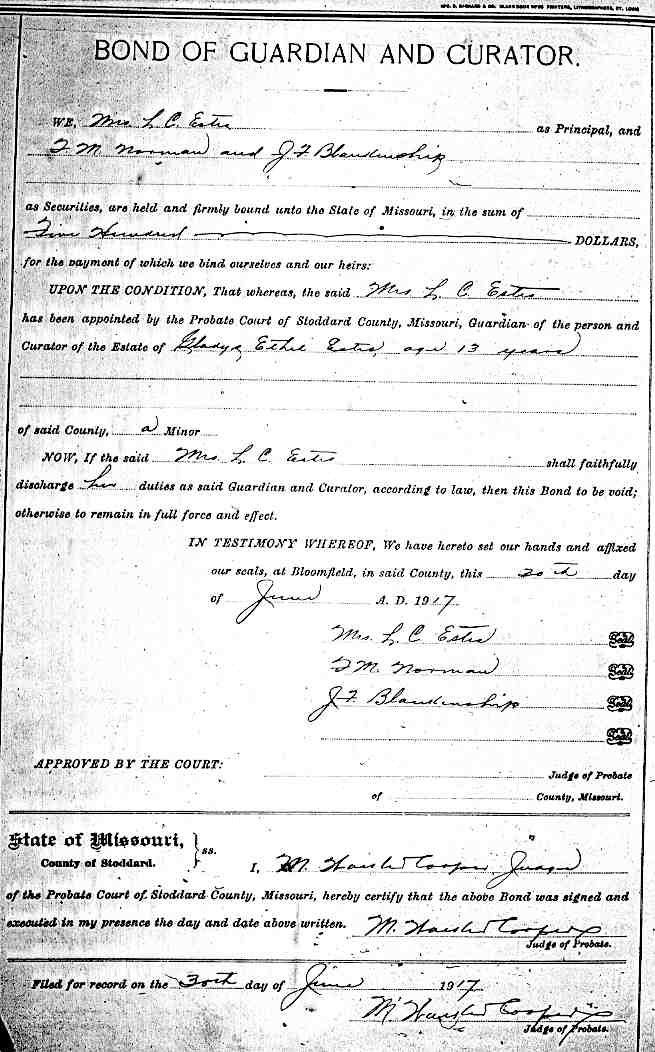 BOND OF GUARDIAN AND CURATOR.
WE, Mrs L. C. Estes as Principal, and
T. M. Norman and J F Blankenship
as Securities, are held and firmly bound unto the State of Missouri, in the sum of
Five Hundred DOLLARS,
for the payment of which we bind ourselves and our heirs:
UPON THE CONDITION, That whereas, the said Mrs L. C. Estes
has been appointed by the Probate Court of Stoddard County, Missouri, Guardian of the person and
Curator of the Estate of Gladys Ethel Estes, age 13 years
of said County, a Minor
NOW, If the said Mrs L. C. Estes shall faithfully
discharge her duties as said Guardian and Curator, according to law, then this Bond to be void;
otherwise to remain in full force and effect.
IN TESTIMONY WHEREOF, We have hereto set our hands and affixed
our seals, at Bloomfield, in said County, this 30th day
of June A. D. 1917.
Mrs. L. C Estes Seal
T. M. Norman Seal
J F Blankenship Seal
Seal
APPROVED BY THE COURT:
Judge of Probate
of County, Missouri.
State of Missouri, } ss.
County of Stoddard.
I, M. Cooper Judge
of the Probate Court of Stoddard County, Missouri, hereby certify that the above Bond was signed and
executed in my presence the day and date above written. M. Cooper
Judge of Probate.
Filed for record on the 30th day of June 1917.
M. Cooper
Judge of Probate.